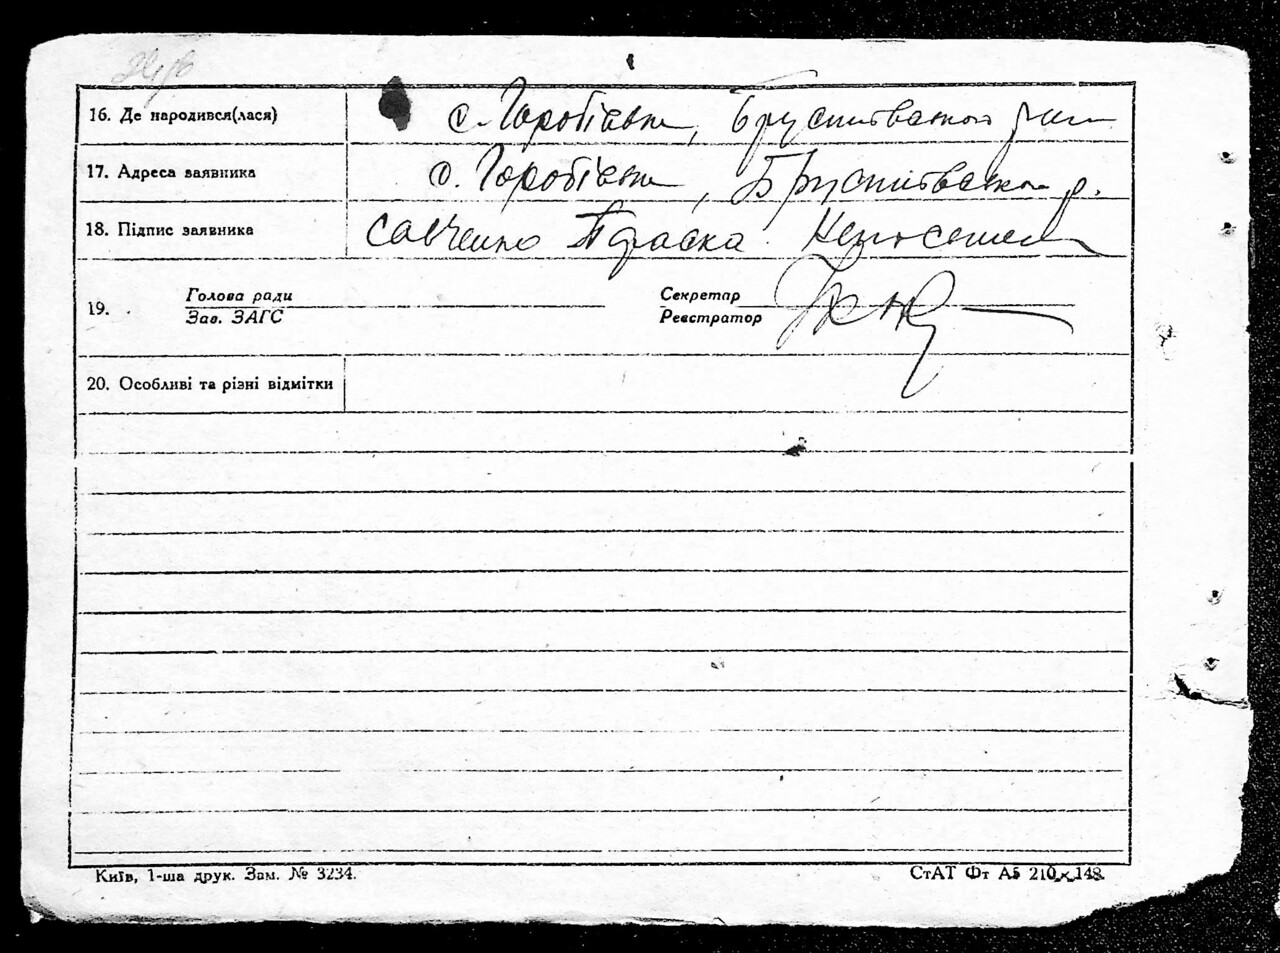 16. Де народився(лася) с. Горобіевка, Брусилівського р-ну
17. Адреса заявника с. Горобіевка, Брусилівського р.
18. Підпис заявника Савченко Параска
19. Голова ради Секретар
Зав. ЗАГС Реєстратор
20. Особливі та різні відмітки
Київ, 1-ша друк. Зам. № 3234. СтАТ Фт А5 210 x 148